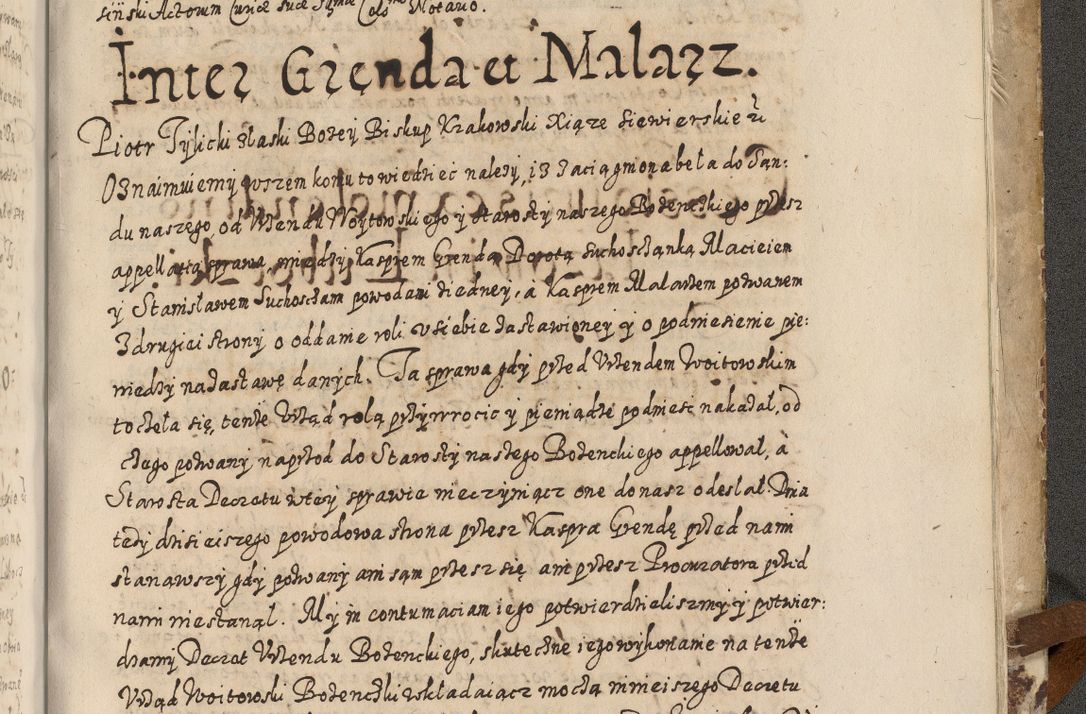 siński Actorum Curiæ suæ
Inter Gręnda et Malarz.
Piotr Tylicki z łaski Bożey Biskup Krakowski Xiąże Siewierskie
Oznaimuiemy wszem komu to wiedzieć należy, iż zaciągniona beła do Sąn:
du naszego, od Vrzendu Woytowskiego y Starosty naszego Bożenckiego przesz
appellatią sprawa, między Kasprem Grendą Dorotą Suchoscłanką Macieiem
y Stanisławem Suchoscłam powodami z iedney, a Kasprem Malarzem pozwanem
z drugiei strony o oddanie roli v siebie zastawioney y o podniesienie pie:
niedzy na zastawę danych. Ta sprawa gdy przed Vrzendem Woitowskim
toczeła się, tenże Vrząd rolą przywrocic y pieniądze podniesc nakazał, od
czego pozwany naprzod do Starosty naszego Bożenckiego appellował, a
Starosta Decretu w tey sprawie nie czyniącz one do nasz odesłał. Dnia
tedy dzisieiszego powodowa strona przesz Kaspra Grendę przed nami
stanąwszy gdy pozwany ani sam przesz się ani przesz Procuratora przed
nami niestanął. My in contumaciam iego potwierdzielismy y potwier:
dzamy Decret Vrzendu Bożenckiego, skuteczne iego wykonanie na tenże
Vrząd Woitowski Bożenczki wkładaiącz moczą ninieiszego Decretu